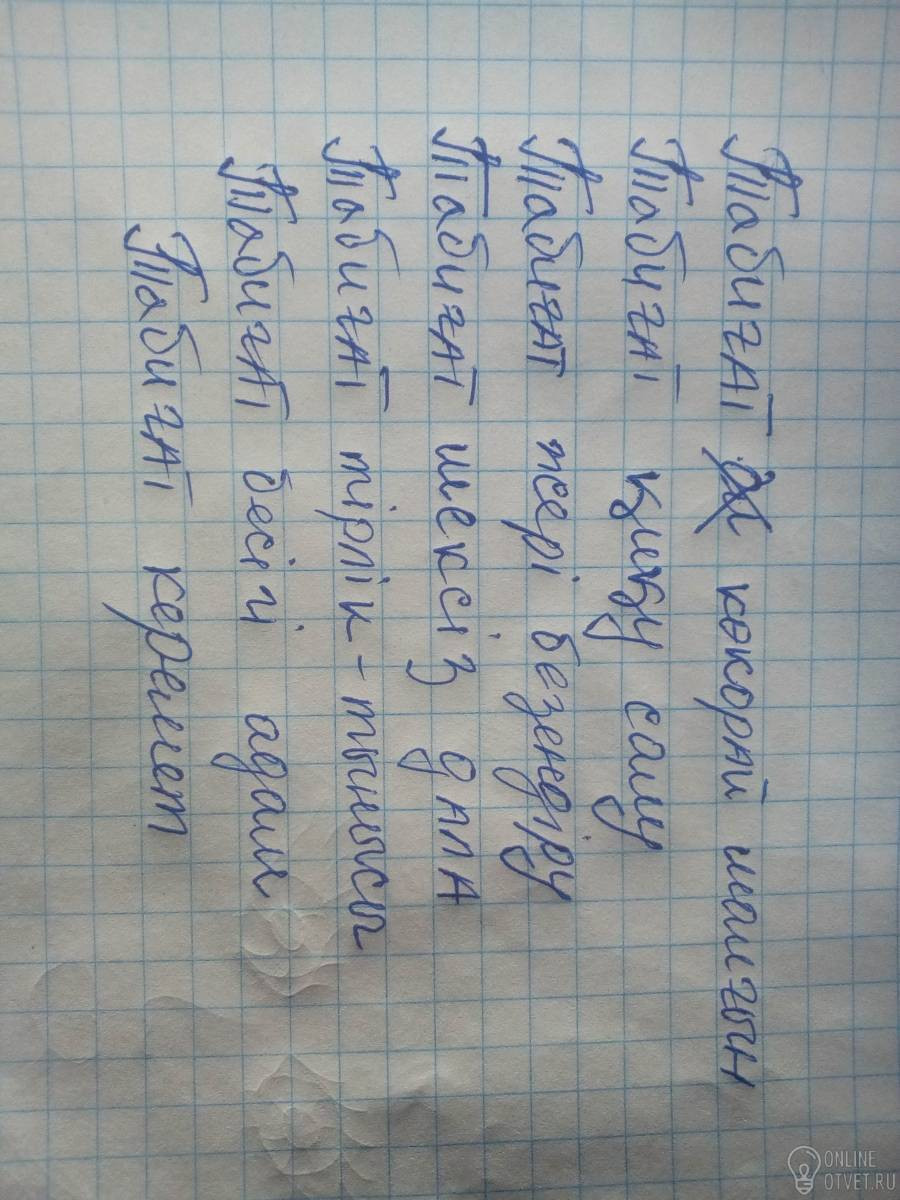 Табиғат көкорай шалғын
Табиғат қиқу салу
Табиғат жері безендіру
Табиғат шексіз дала
Табиғат тірлік-тынысы
Табиғат бесігі адам
Табиғат керемет
ONLINE
OTVET.RU